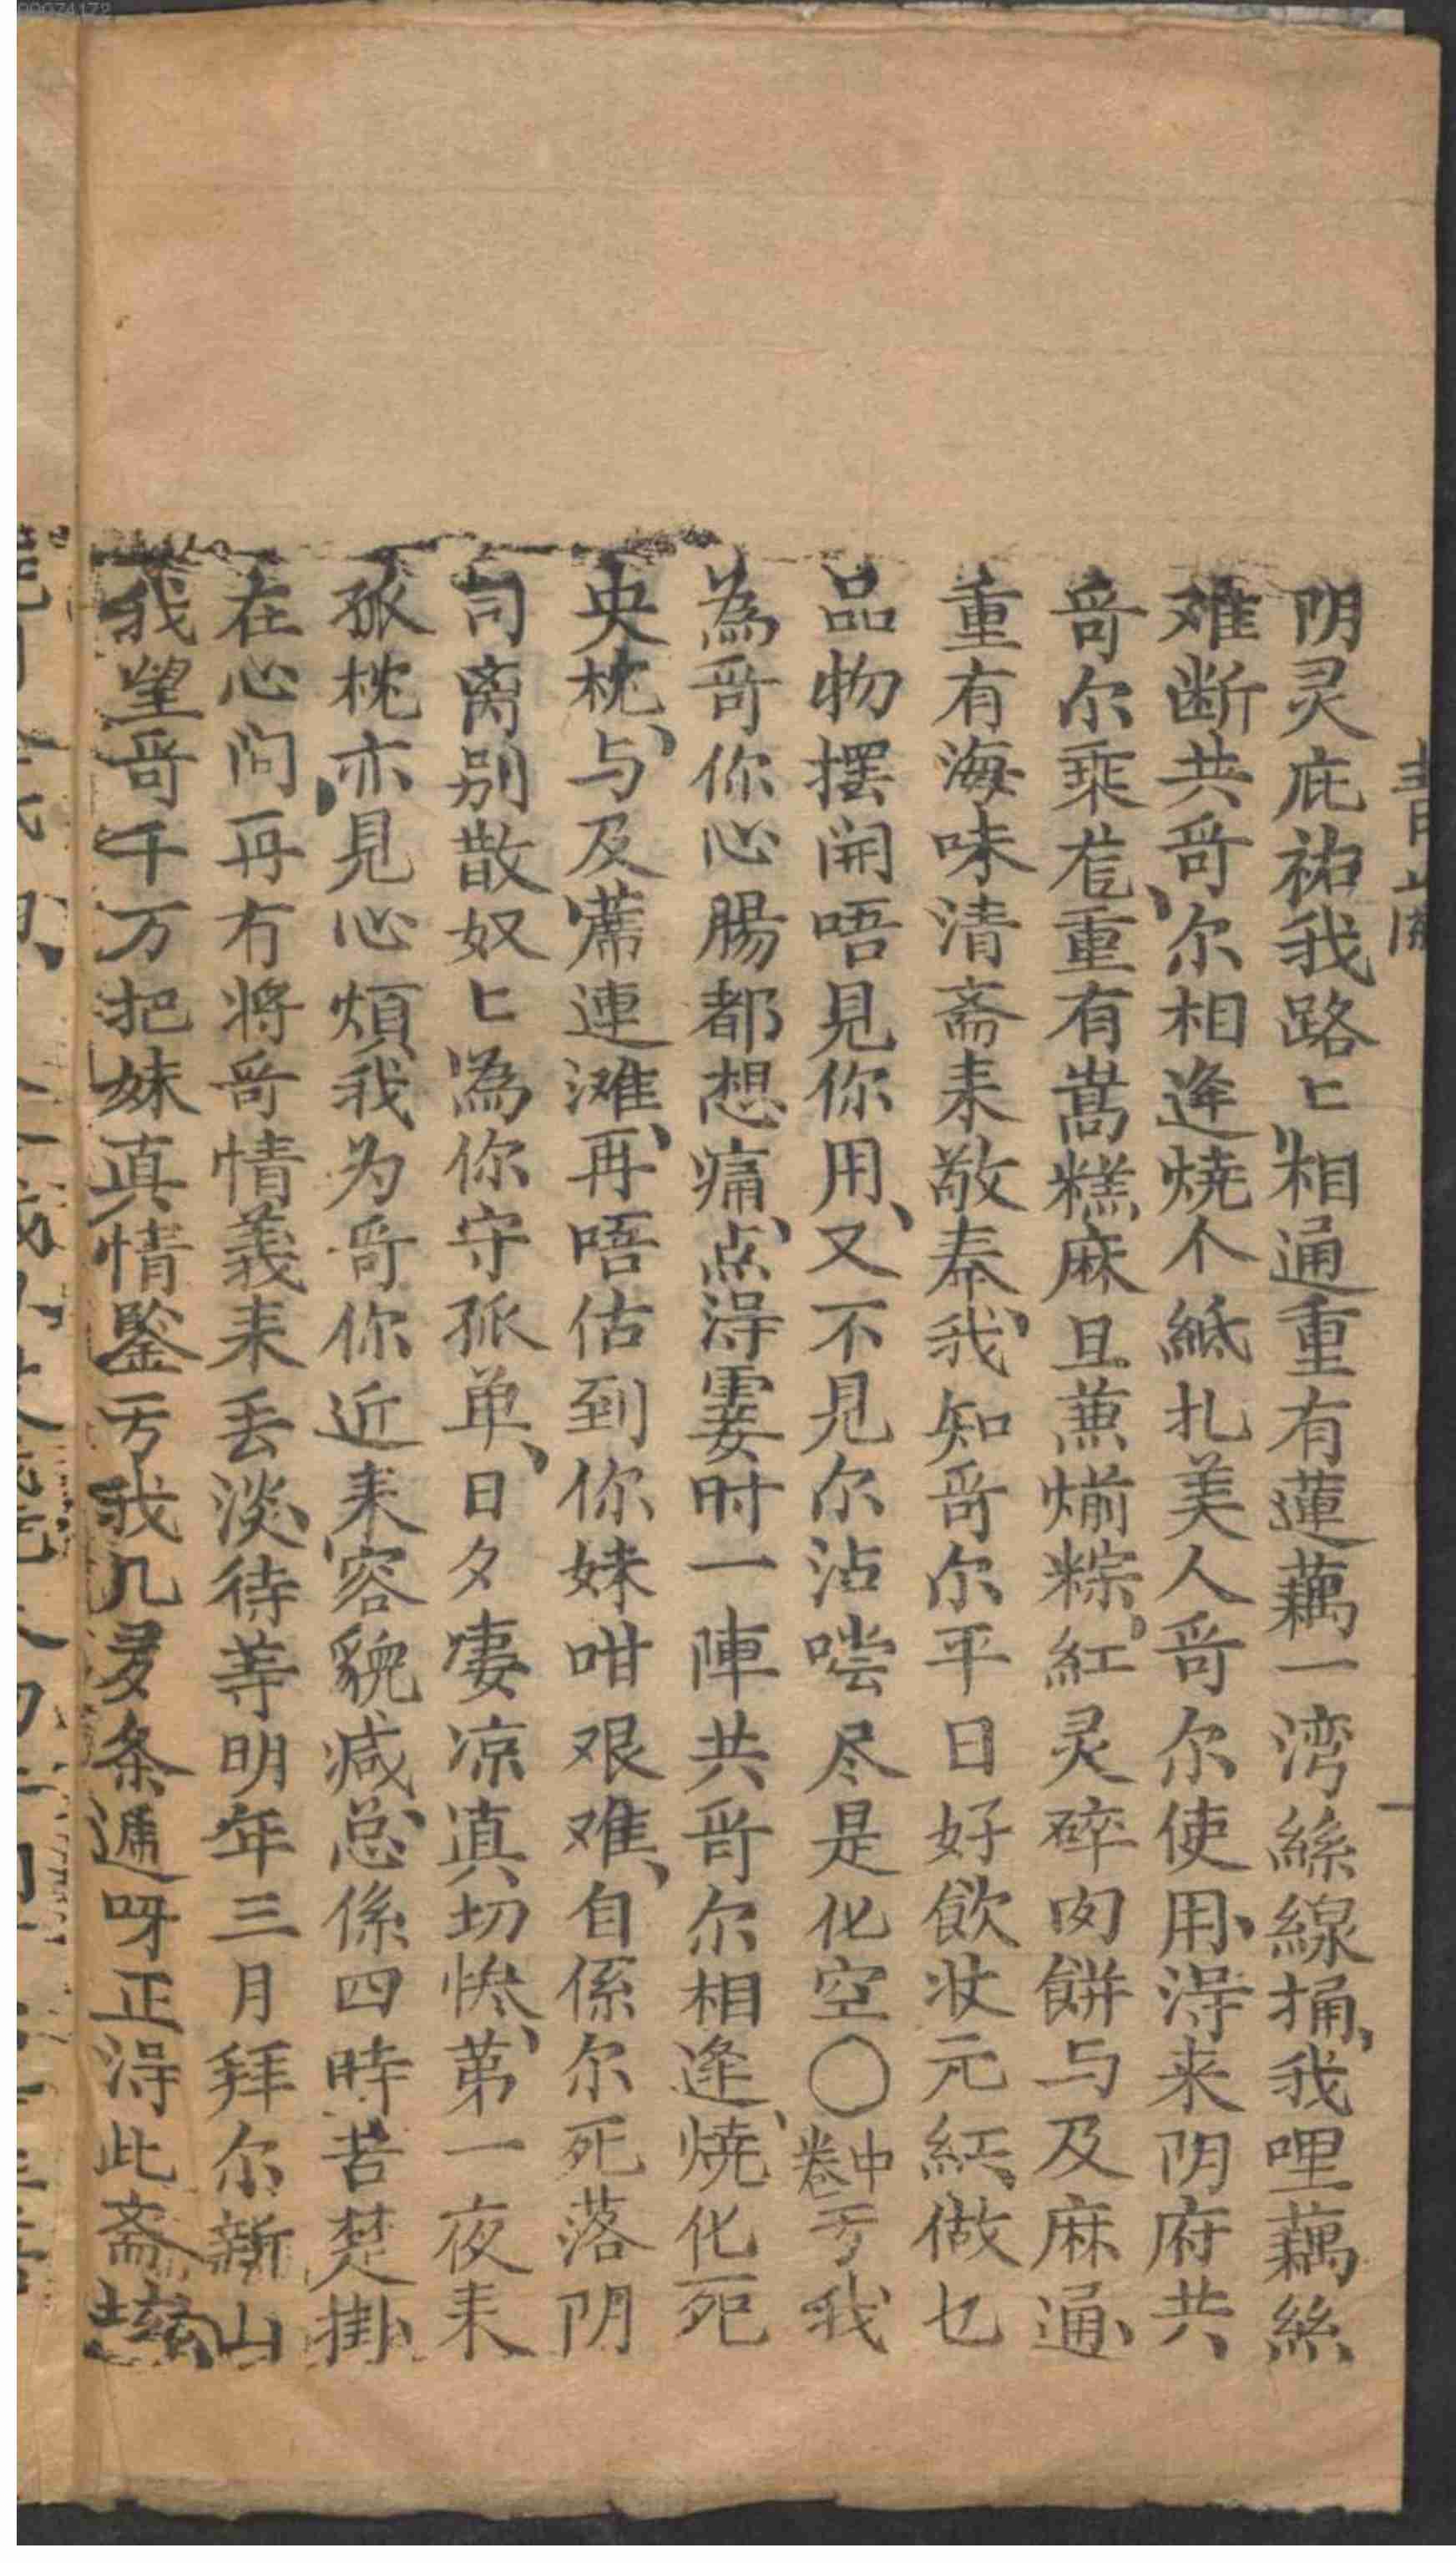 阴灵庇祐我路匕相通重有蓮藕一湾絲線捅、我哩藕絲
难断共哥、尔相逢燒个紙扎美人哥尔使用、淂来阴府共
哥尔乘鸾重有嵩糕麻旦蕉煎粽、紅灵碎肉餅与及麻通、
重有海味清斋耒敬奉、我知哥尔平日好飲壮元紅、做乜
品物摆開唔見你用、又不見尔沾嚐尽是化空〇中卷亐我
為哥你心腸都想痛、点淂霎时一陣共哥尔相逢、燒化死
央枕、与及蓆連滩、再唔估到你妹咁艰难、自係尔死落阴
司离别散奴匕為你守孤单、日夕凄凉真切惨、第一夜耒
孤枕亦見心煩、我为哥你近耒容貌减、总係四時苦楚掛
在心问再冇将哥情義耒丢淡、待等明年三月拜尔新山
我望哥千万把妹真情鑒亐我几多条遞呀正淂此斋壇